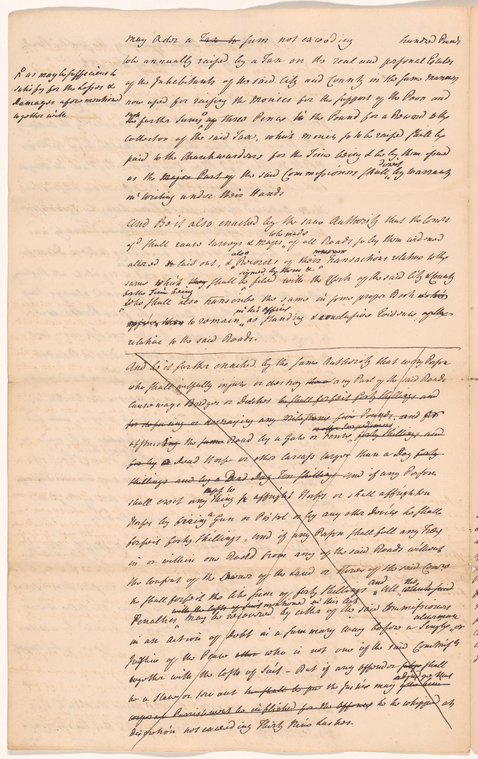 may Order a Tax to sum not exceeding hundred Pounds
to be annually raised by a Tax on the real and personal Estates
of the Inhabitants of the said City and County in the same manner
now used for raising the Monies for the support of the Poor and
the further Sum of three Pence in the Pound for a Reward to the
Collector of the said Tax, which Monies so to be raised shall be
paid to the Churchwardens for the Time being & be by them issued
as the major Part of the said Commissioners shall direct by Warrants
in Writing under their Hands
as may be sufficient to
satisfy for the Losses &
Damages afore mentioned
together with
And Be it also enacted by the same Authority that the Comrs
shall cause Surveys & Maps to be made of all Roads so by them widened
altered & laid out, & also Records of their Transactions relative to the
same which they shall signed by them be filed with the Clerk of the said City & County
for the Time being
who shall also transcribe the same in some proper Book
to remain in his office as standing & conclusive Evidence
relative to the said Roads.
And be it further enacted by the same Authority that every Person
who shall wilfully injure or destroy any Part of the said Roads
Causeways Bridges or Ditches he shall forfeit forty shillings and
for defacing or destroying any Milestone five Pounds, and for
obstructing the same Road by a Gate or Fence forty shillings and
for by a Dead Horse or other Carcass larger than a Dog forty
shillings and by a Dead Dog Ten shillings and if any Person
shall erect any thing to affright Horses or shall affrighten
Horses by firing a Gun or Pistol or by any other Device he shall
forfeit forty shillings, and if any Person shall fell any Tree
in or within one Rod from any of the said Roads without
the consent of the Owner of the Land or three of the said Comrs
he shall forfeit the like sum of forty shillings and All the
Penalties mentioned in this Act may be recovered by either of the said Commissioners
in an action of Debt in a summary way before a single alderman or
Justice of the Peace who is not one of the said Comrs
together with the Costs of Suit - But if any offender shall
be a Slave or Servant the Justice may adjudge that
he be whipped at
Discretion not exceeding Thirty Nine Lashes.